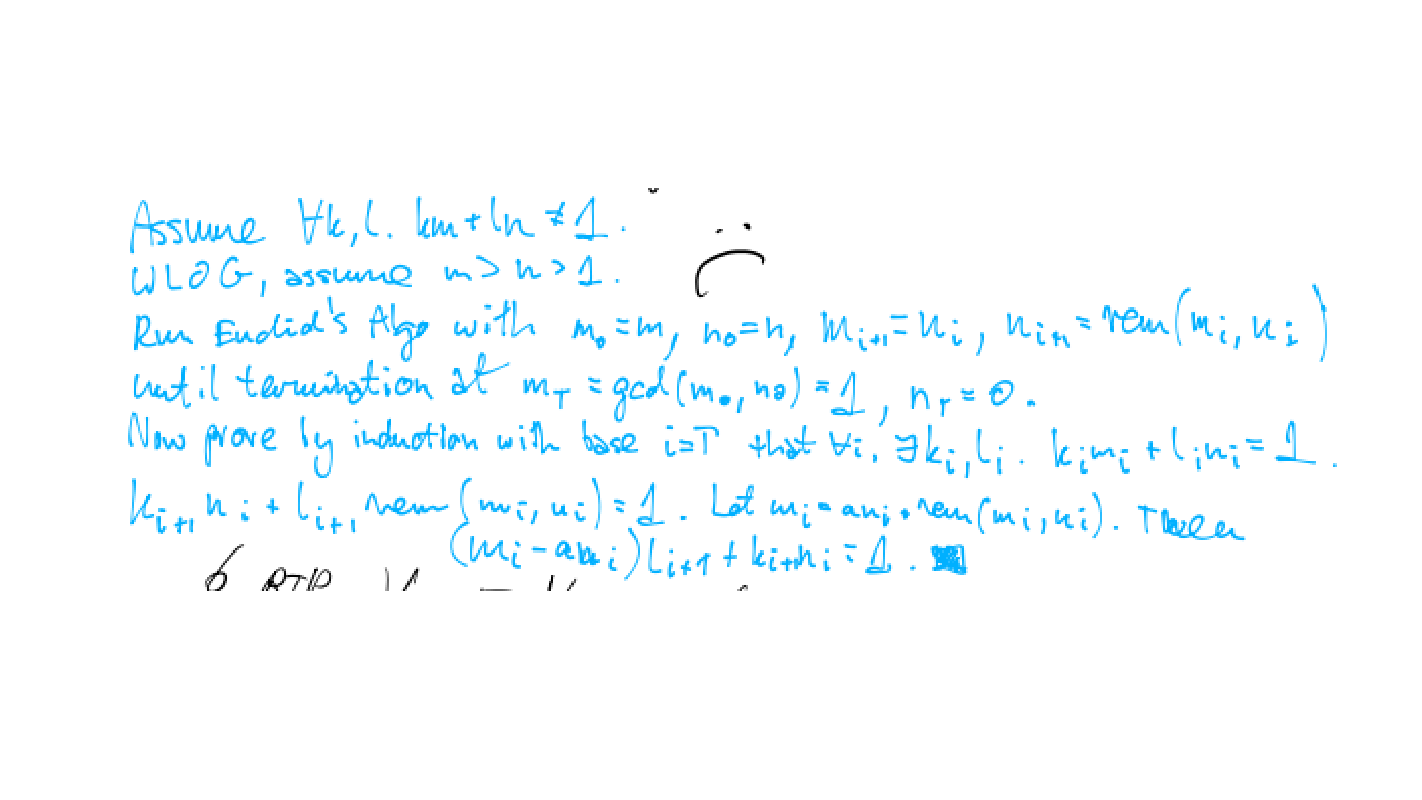 Assume ∀k,l. km+ln ≠ 1.
WLOG, assume m > n > 1.
Run Euclid's Algo with m₀=m, n₀=n, mᵢ₊₁=nᵢ, nᵢ₊₁=rem(mᵢ,nᵢ)
until termination at m_T = gcd(m₀,n₀) = 1, n_T = 0.
Now prove by induction with base i=T that ∀i. ∃kᵢ,lᵢ. kᵢmᵢ + lᵢnᵢ = 1.
kᵢ₊₁nᵢ + lᵢ₊₁rem(mᵢ,nᵢ) = 1. Let mᵢ = anᵢ + rem(mᵢ,nᵢ). Then
(mᵢ - anᵢ)lᵢ₊₁ + kᵢ₊₁nᵢ = 1.